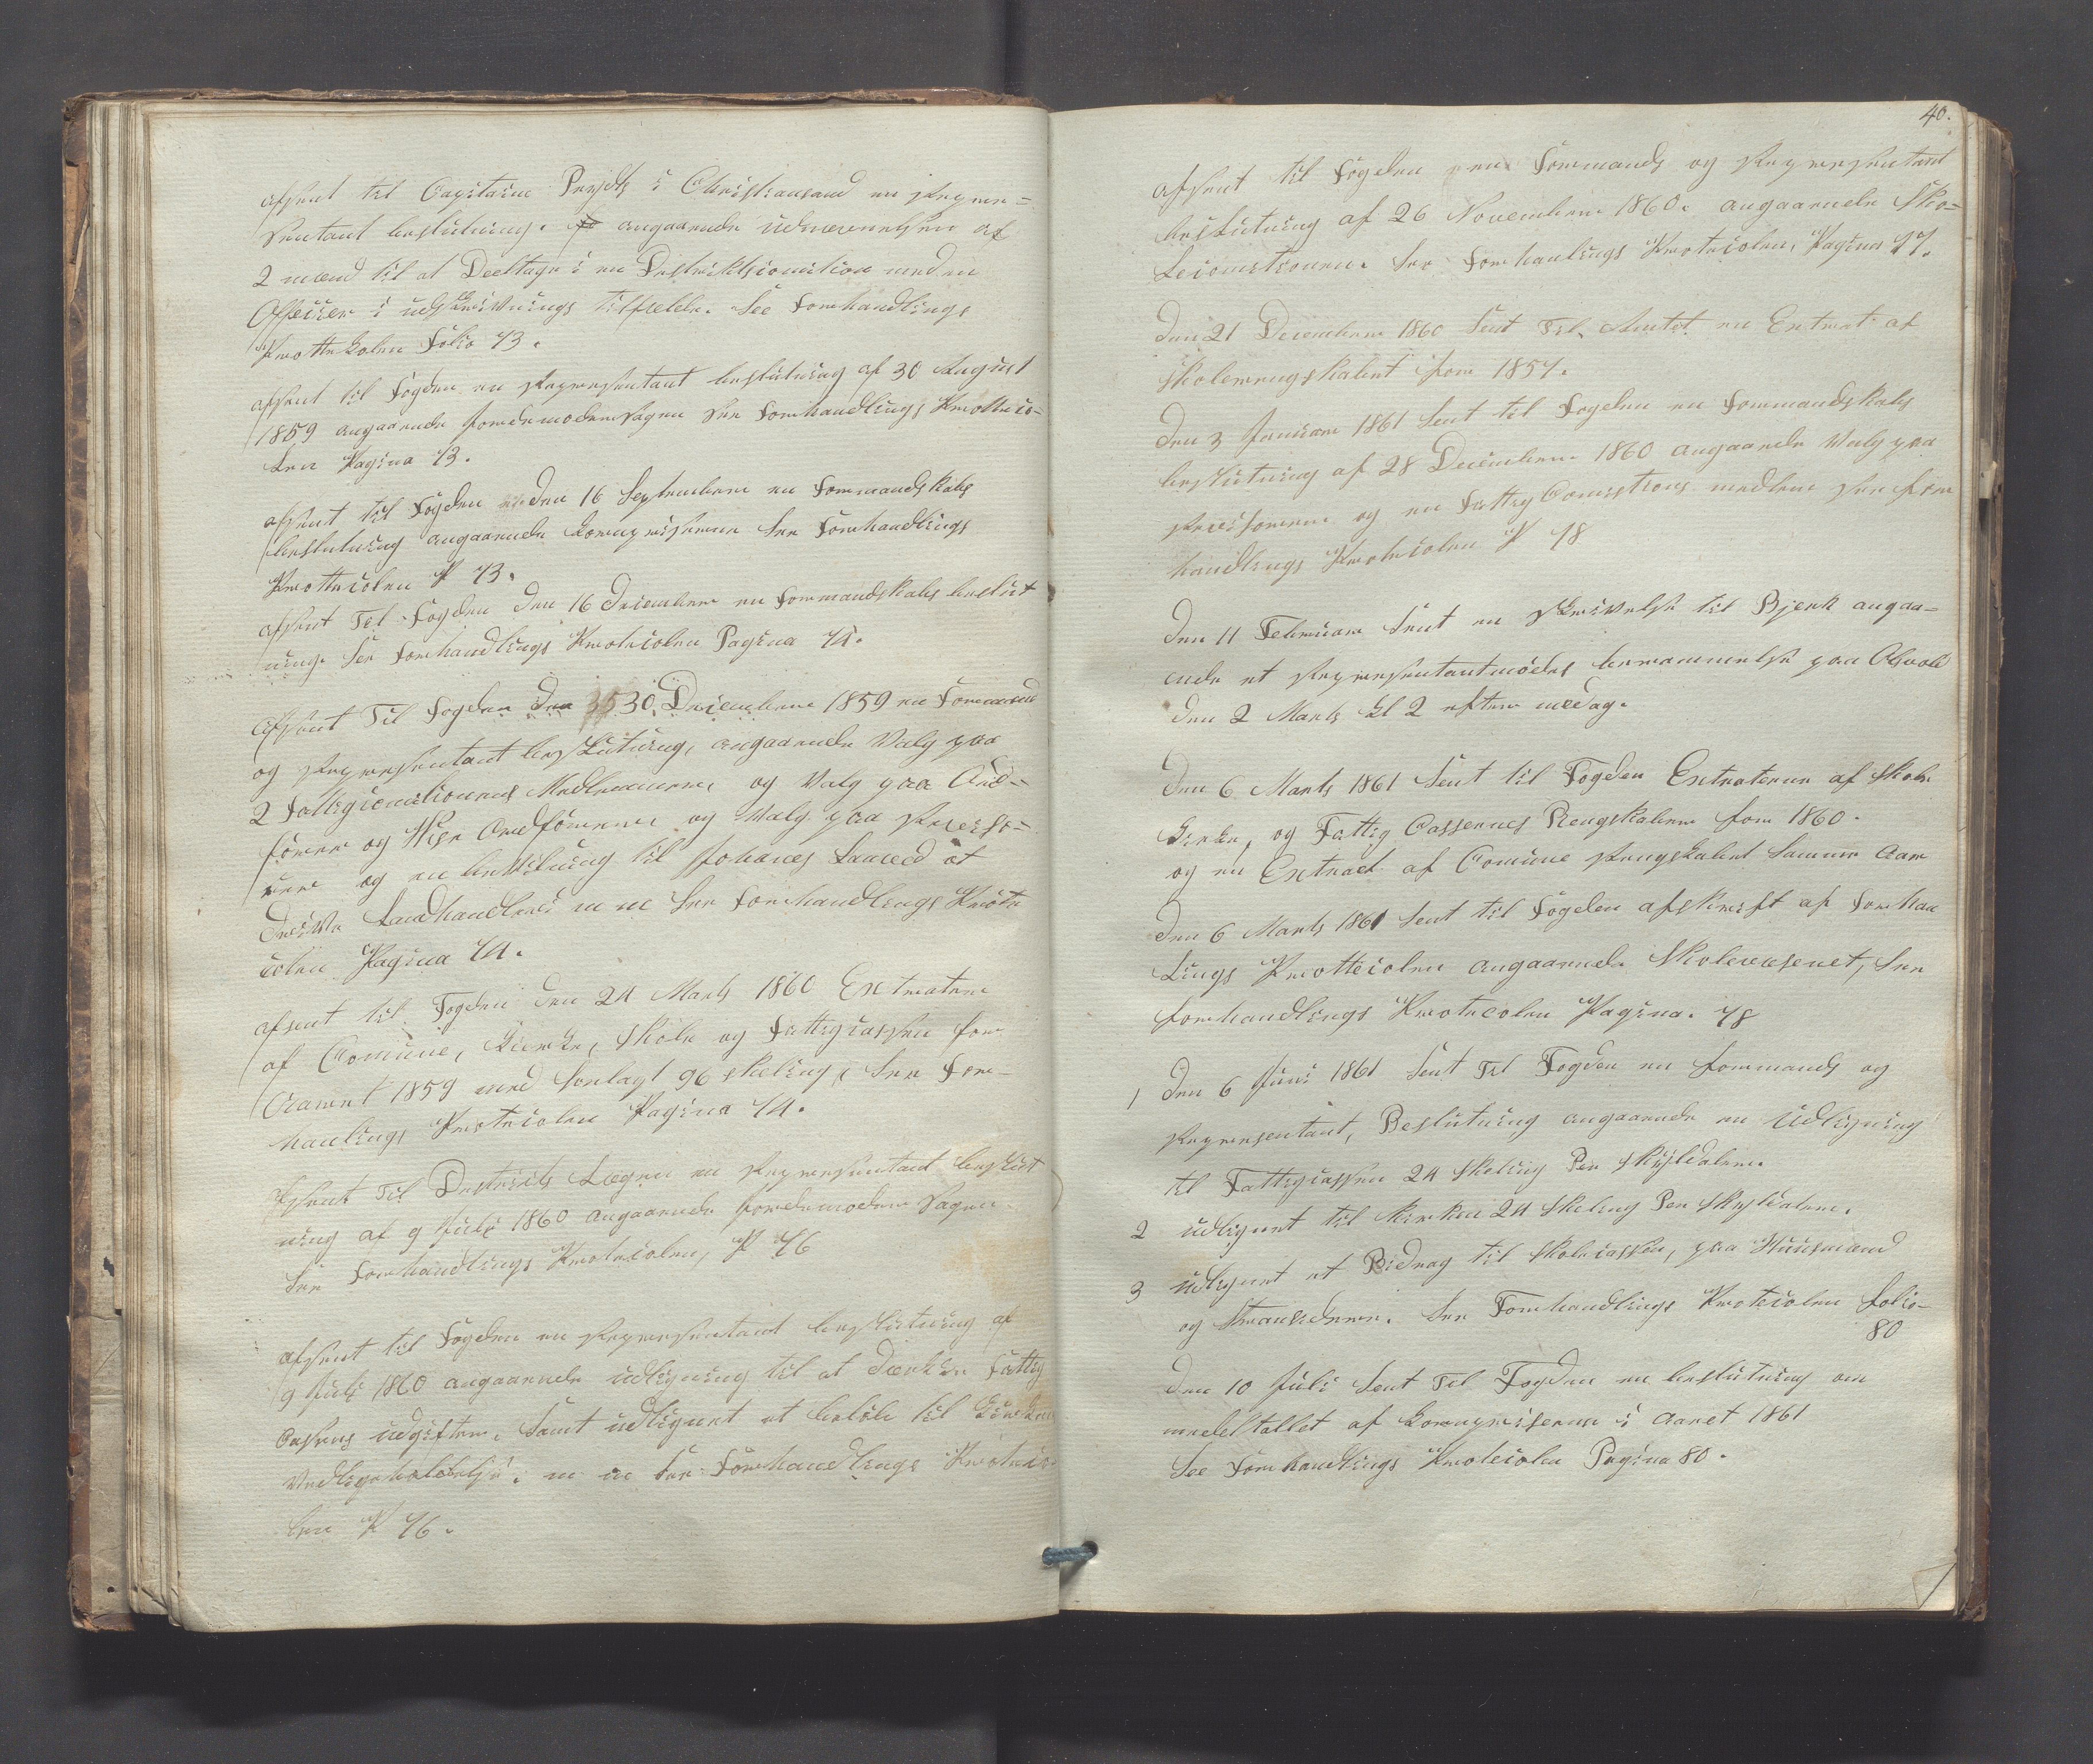 afsent til Capitaine Preydts i Christiansand en Repre=
sentant beslutning. angaaende udnævnelsen af
2 mænd til at Deeltage i en Destriktscomition med en
Officier i udskrivnings tilfælde. See Forhandlings
Prottekolen Folio 73.
afsent til Fogden en Repræsentant beslutning af 30 August
1859 angaaende Jordemodersagen See Forhandlings Prottoco=
len Pagina 73.
afsent til Fogden den 16 September en Formandskabs
beslutning angaaende Kornpriserne See Forhandlings
Prottecolen P 73.
afsent Til Fogden den 16 December en Formandskabs beslut
ning. See Forhandlings Protecolen Pagina 74.
Afsent Til Fogden den 30 December 1859 en Formand
og Repræsentant beslutning, angaaende Valg paa
2 Fattigcomitionens Medlemmer, og Valg paa Ord=
fører og Vise Ordfører og Valg paa Reviso=
rer og en bevilning til Johanes Lauved at
Drive Landhandleri m m See Forhandlings Prote
colen Pagina 74.
afsent til Fogden den 24 Marts 1860 Extrater
af Comune, Kierke, Skole og Fattigcassen for
Aaret 1859 med Forlagt 96 skeling, See For=
hanlings Protecolen Pagina 74.
Afsent Til Destricts Lægen en Repræsentant beslut
ning af 9 Juli 1860 angaaende Jordemoder Sagen
See Forhandlings Protecolen, P 76
afsent til Fogden en Repræsentant beslutning af
9 Juli 1860 angaaende udligning til at Dække Fattig
Cassens udgifter, samt udlignet et beløb til Kirkens
Vedligeholdelse. m m See Forhandlings Protoco-
len P 76.
40.
afsent til Fogden en Formands og Repræsentant
beslutning af 26 November 1860. angaaende Sko=
lecomitionen. See Forhanlings Protecolen, Pagina 77.
Den 21 December 1860 Sent Til Amtet en Extrat af
Skoleregnskabet for 1857.
Den 3 Januar 1861 Sent til Fogden en Formandskabs
beslutning af 28 December 1860 angaaende Valg paa
Revisorer og en Fattig Comitions medlem See For
handlings Protecolen P 78
Den 11 Februar Sent en Skrivelse til Bjerk angaa=
ende et Repræsentantmødes berammelse paa
Den 2 Marts kl 2 efter medag.
Den 6 Marts 1861 Sent til Fogden Extraterne af Skole
Kirke, og Fattig Cassernes Rengskaber for 1860.
og en Extract af Comune Rengskabet Samme Aar
Den 6 Marts 1861 Sent til Fogden afskrift af Forhan
lings Prottecolen angaaende Skolevæsenet, See
forhandlings Protecolen Pagina. 78
1 Den 6 Juni 1861 Sent Til Fogden en formands og
Repræsentant, Beslutning angaaende en Udligning
til Fattigcassen 24 Skeling Per Skyldaler.
2 udlignet til kirken 24 Skeling Per Skyldaler.
3 udlignet et Bidrag til Skolecassen, paa Huusmænd
og Strandsidere. See Forhandlings Protecolen Folio
80
Den 10 Juli Sent Til Fogden en beslutning om
medeltallet af Kornpriserne i Aaret 1861
See Forhandlings Protecolen Pagina 80.